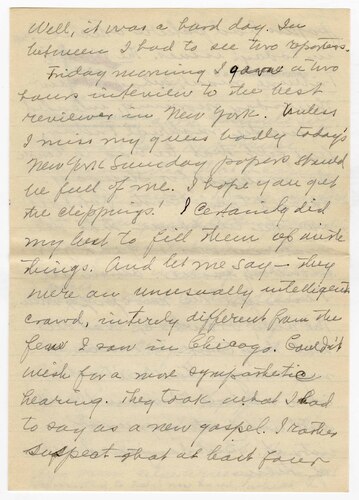 Well, it was a hard day. In
between I had to see two reporters.
Friday morning I gave a two
hours interview to the best
reviewer in New York. Unless
I miss my guess badly today's
New York Sunday papers should
be full of me. I hope you get
the clippings! I certainly did
my best to fill them up with
things. And let me say – they
were an unusually intelligent
crowd, intirely different from the
few I saw in Chicago. Couldn't
wish for a more sympathetic
hearing. They took what I had
to say as a new gospel. I rather
suspect that at least four